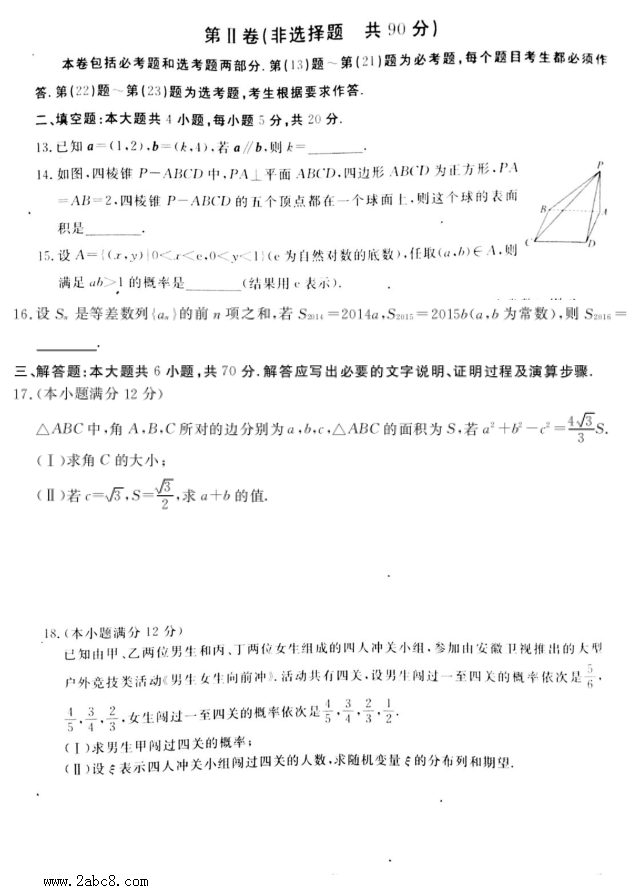 第Ⅱ卷(非选择题 共90分)
本卷包括必考题和选考题两部分.第(13)题~第(21)题为必考题,每个题目考生都必须作
答.第(22)题~第(23)题为选考题,考生根据要求作答.
二、填空题:本大题共4小题,每小题5分,共20分.
13.已知a=(1,2),b=(k,4),若a∥b,则k=________.
14.如图,四棱锥P-ABCD中,PA⊥平面ABCD,四边形ABCD为正方形,PA
=AB=2,四棱锥P-ABCD的五个顶点都在一个球面上,则这个球的表面
积是________.
P
B
A
C
D
15.设A={(x,y)|0<x<e,0<y<1}(e为自然对数的底数),任取(a,b)∈A,则
满足ab>1的概率是________(结果用e表示).
16.设Sₙ是等差数列{aₙ}的前n项之和,若S₂₀₁₄=2014a,S₂₀₁₅=2015b(a,b为常数),则S₂₀₁₆=
________.
三、解答题:本大题共6小题,共70分.解答应写出必要的文字说明、证明过程及演算步骤.
17.(本小题满分12分)
△ABC中,角A,B,C所对的边分别为a,b,c,△ABC的面积为S,若a²+b²-c²=4√3/3 S.
(Ⅰ)求角C的大小;
(Ⅱ)若c=√3,S=√3/2,求a+b的值.
18.(本小题满分12分)
已知由甲、乙两位男生和丙、丁两位女生组成的四人冲关小组,参加由安徽卫视推出的大型
户外竞技类活动《男生女生向前冲》.活动共有四关,设男生闯过一至四关的概率依次是5/6,
4/5,3/4,2/3,女生闯过一至四关的概率依次是4/5,3/4,2/3,1/2.
(Ⅰ)求男生甲闯过四关的概率;
(Ⅱ)设ξ表示四人冲关小组闯过四关的人数,求随机变量ξ的分布列和期望.
www.2abc8.com